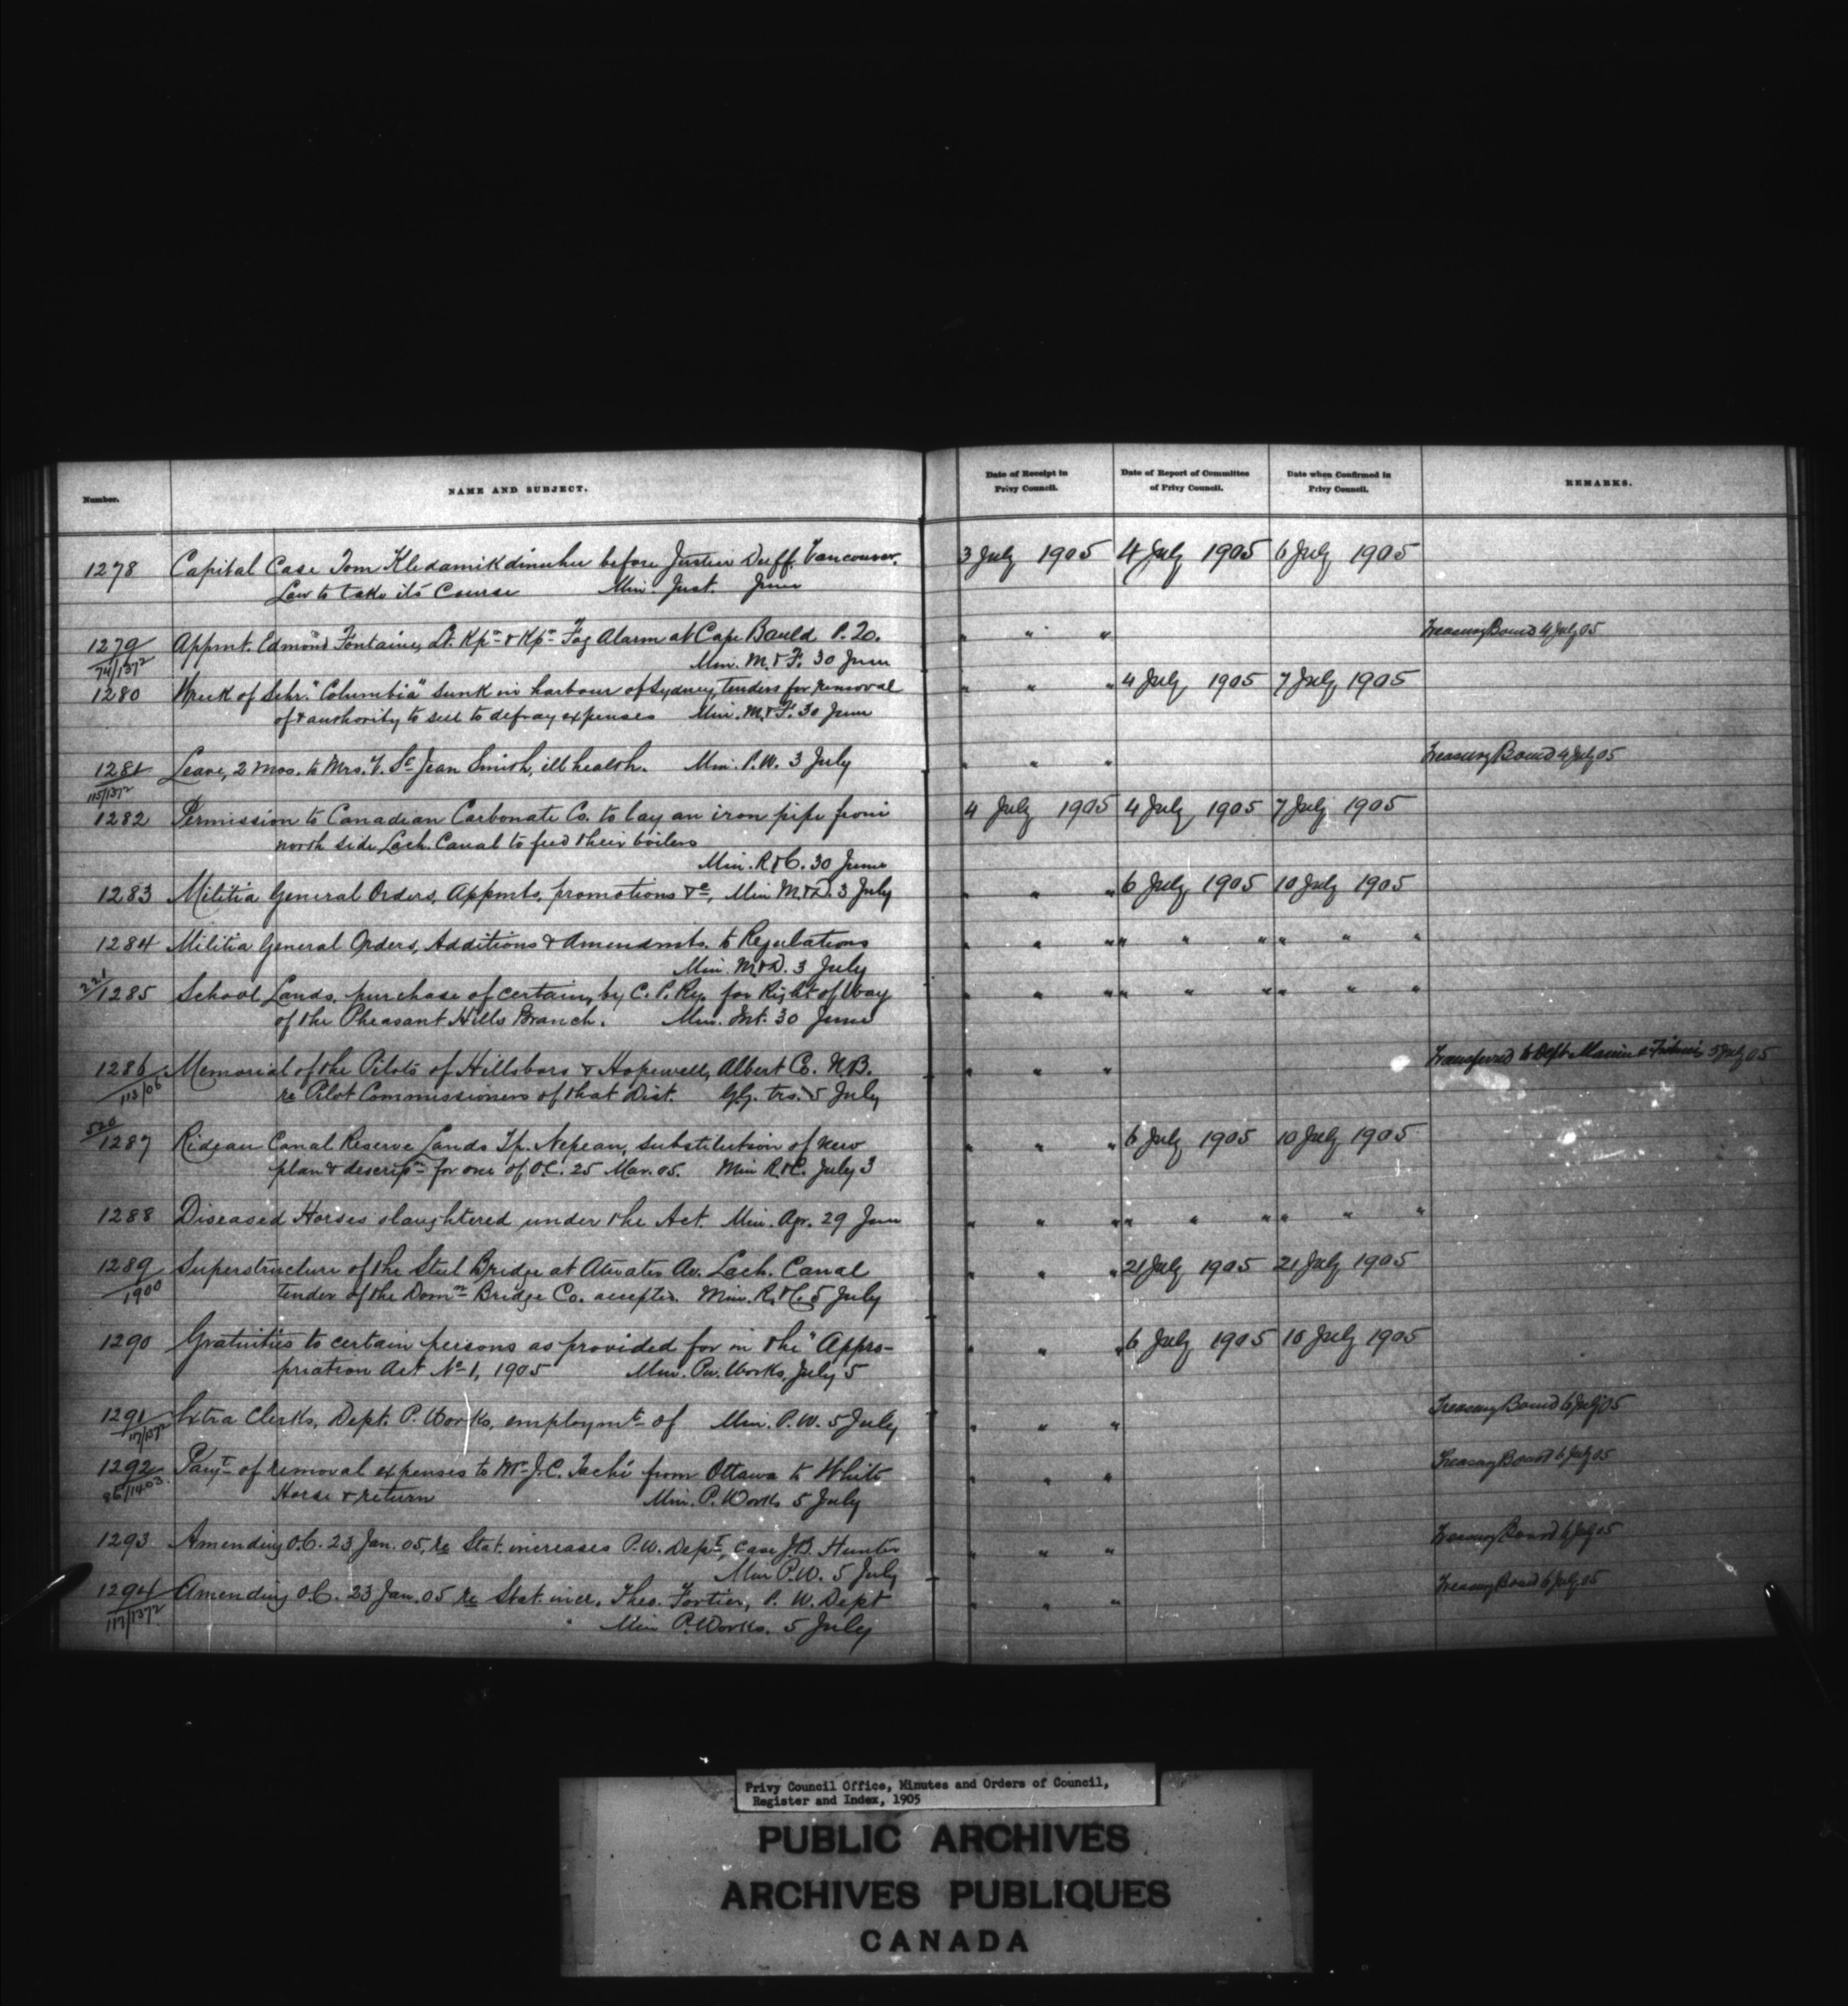 Number.
NAME AND SUBJECT.
Date of Receipt in Privy Council.
Date of Report of Committee of Privy Council.
Date when Confirmed in Privy Council.
REMARKS.
1278 Capital Case Tom before Justice Duff, Vancouver. 3 July 1905 4 July 1905 6 July 1905
Law to take its Course Min. Just. June
1279 Appmt. Edmond Fontaine, Lt. Kpr & Kpr Fog Alarm at Cape Bauld P. 20. " " " Treasury Board 4 July 05
74/1372 Min. M. & F. 30 June
1280 Wreck of Schr. "Columbia" sunk in harbour of Sydney, tenders for removal " " " 4 July 1905 7 July 1905
of & authority to sell to defray expenses Min. M. & F. 30 June
1281 Leave, 2 mos. to Mrs. V. St Jean Smith, ill health. Min. P.W. 3 July " " " Treasury Board 4 July 05
115/1372
1282 Permission to Canadian Carbonate Co. to lay an iron pipe from 4 July 1905 4 July 1905 7 July 1905
north side Lach. Canal to feed their boilers
Min. R & C. 30 June
1283 Militia General Orders, Appmts, promotions &c, Min M. & D. 3 July " " " 6 July 1905 10 July 1905
1284 Militia General Orders, Additions & Amendmts. to Regulations " " " " " " " " "
Min. M. & D. 3 July
221
1285 School Lands, purchase of certain, by C. P. Ry. for Right of Way " " " " " " " " "
of the Pheasant Hills Branch. Min. Int. 30 June
1286 Memorial of the Pilots of Hillsboro & Hopewell, Albert Co. N.B. " " " Transferred to Dept Marine & Fisheries 5 July 05
113/06 re Pilot Commissioners of that Dist. G.G. trs. 5 July
520
1287 Rideau Canal Reserve Lands Tp. Nepean, substitution of new " " " 6 July 1905 10 July 1905
plan & descripn for one of O.C. 25 Mar. 05. Min R. & C. July 3
1288 Diseased Horses slaughtered under the Act. Min. Agr. 29 June " " " " " " " " "
1289 Superstructure of the Steel Bridge at Atwater Av. Lach. Canal " " " 21 July 1905 21 July 1905
1900 tender of the Domn Bridge Co. accepted. Min. R. & C. 5 July
1290 Gratuities to certain persons as provided for in the "Appro- " " " 6 July 1905 10 July 1905
priation Act No 1, 1905 Min. Pu. Works, July 5
1291 Extra Clerks, Dept. P. Works, employmt of Min. P.W. 5 July " " " Treasury Board 6 July 05
117/1372
1292 Paymt of removal expenses to Mr J.C. Taché from Ottawa to White " " " Treasury Board 6 July 05
86/1403. Horse & return Min. P. Works 5 July
1293 Amending O.C. 23 Jan. 05, re Stat. increases P.W. Dept, case J.B. Hunter " " " Treasury Board 6 July 05
Min P.W. 5 July
1294 Amending O.C. 23 Jan. 05 re Stat. incr. Theo. Fortier, P. W. Dept " " " Treasury Board 6 July 05
117/1372 Min P. Works. 5 July
Privy Council Office, Minutes and Orders of Council,
Register and Index, 1905
PUBLIC ARCHIVES
ARCHIVES PUBLIQUES
CANADA